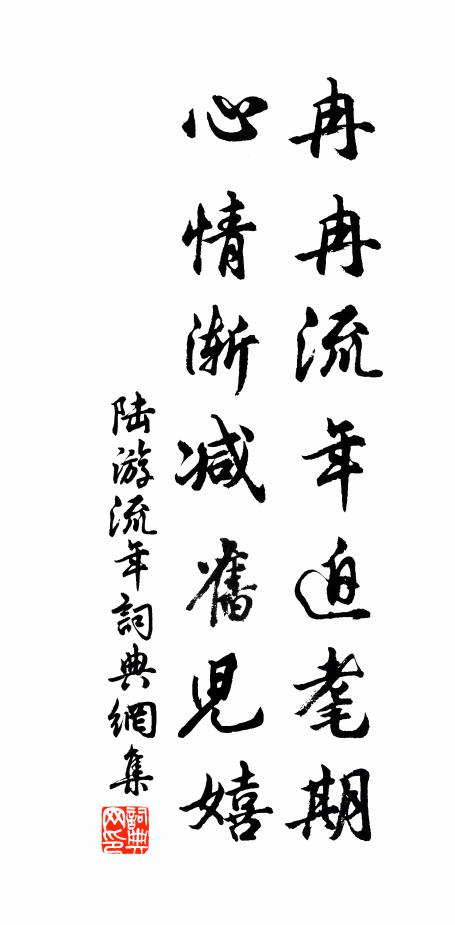 冉冉流年迫耄期
心情漸減舊兒嬉
陸游流年詞典網集
詞典
网印